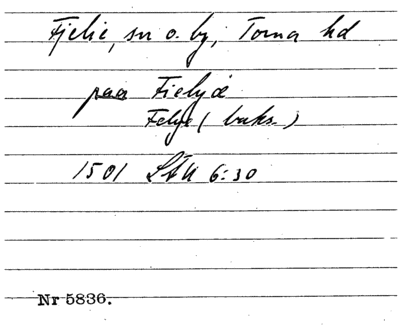 Fjelie, sn o. by, Torna hd
paa Fielyæ
Felye (baks.)
1501 LÅU 6:30
Nr 5836.